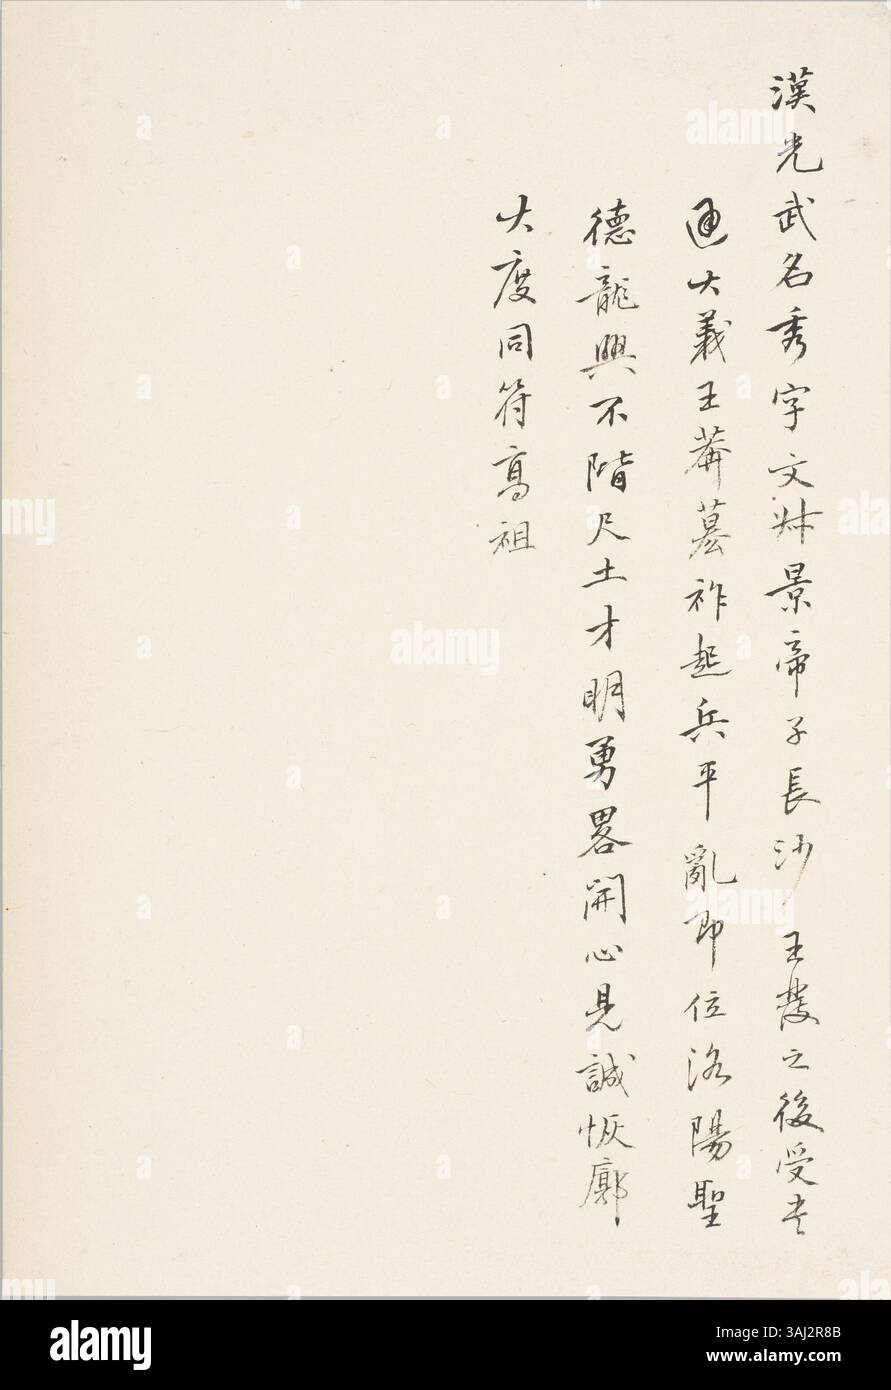 漢光武名秀字文叔景帝子長沙王發之後受書
通大義王莽篡祚起兵平亂即位洛陽聖
德龍興不階尺土才明勇畧開心見誠恢廓
大度同符高祖
alamy
Image ID: 3AJ2R8B
www.alamy.com